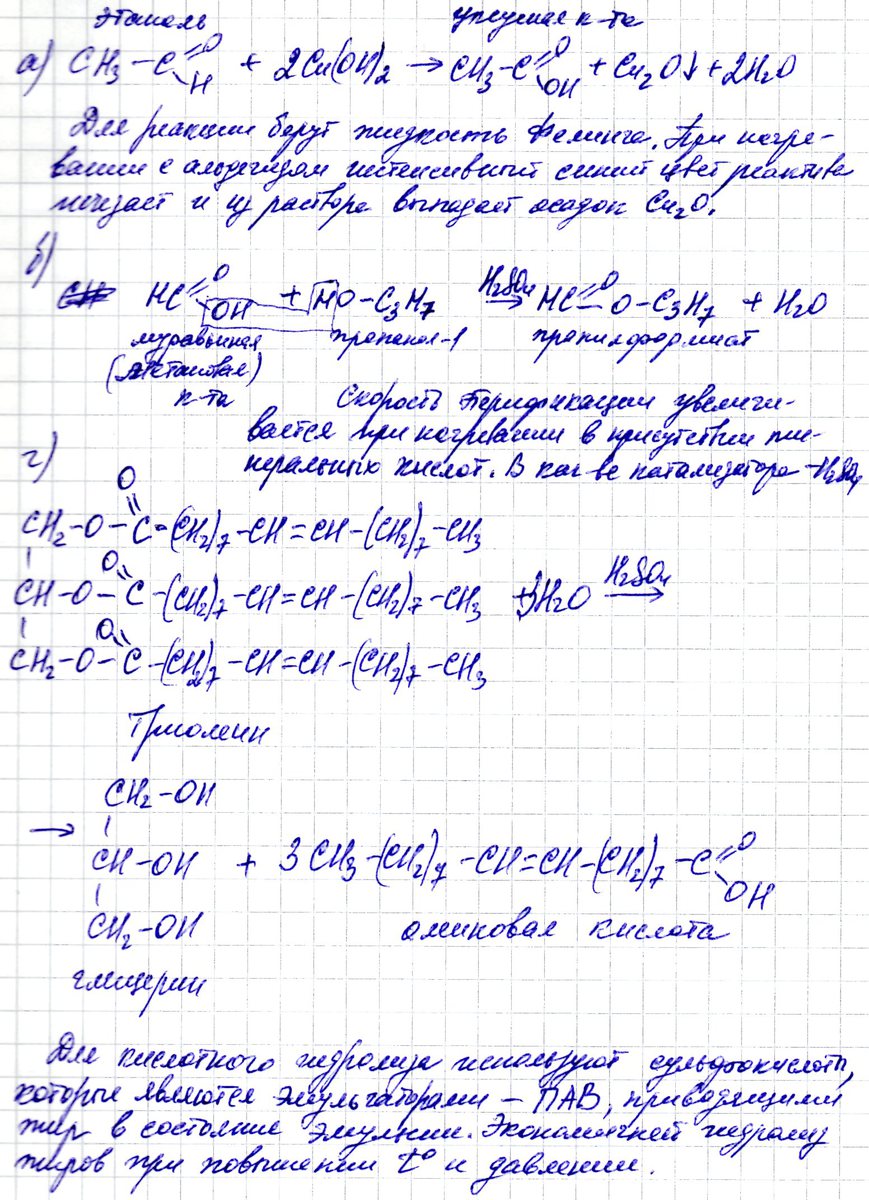 этаналь уксусная к-та
а) CH₃ – C =O H + 2Cu(OH)₂ → CH₃ – C =O OH + Cu₂O↓ + 2H₂O
Для реакции берут жидкость Фелинга. При нагре-
вании с альдегидом интенсивный синий цвет реактива
исчезает и из раствора выпадает осадок Cu₂O.
б)
HC =O OH + HO – C₃H₇ H₂SO₄ → HC =O – O – C₃H₇ + H₂O
муравьиная пропанол-1 пропилформиат
(метановая)
к-та
Скорость этерификации увеличи-
вается при нагревании в присутствии ми-
неральных кислот. В кач-ве катализатора – H₂SO₄
г)
CH₂ – O – C(=O) – (CH₂)₇ – CH = CH – (CH₂)₇ – CH₃
CH – O – C(=O) – (CH₂)₇ – CH = CH – (CH₂)₇ – CH₃ + 3H₂O H₂SO₄ →
CH₂ – O – C(=O) – (CH₂)₇ – CH = CH – (CH₂)₇ – CH₃
Триолеин
CH₂ – OH
→ CH – OH + 3CH₃ – (CH₂)₇ – CH = CH – (CH₂)₇ – C =O OH
CH₂ – OH олеиновая кислота
глицерин
Для кислотного гидролиза используют сульфокислоты,
которые являются эмульгаторами – ПАВ, приводящими
жир в состояние эмульсии. Экономичней гидролиз
жиров при повышении t° и давлении.